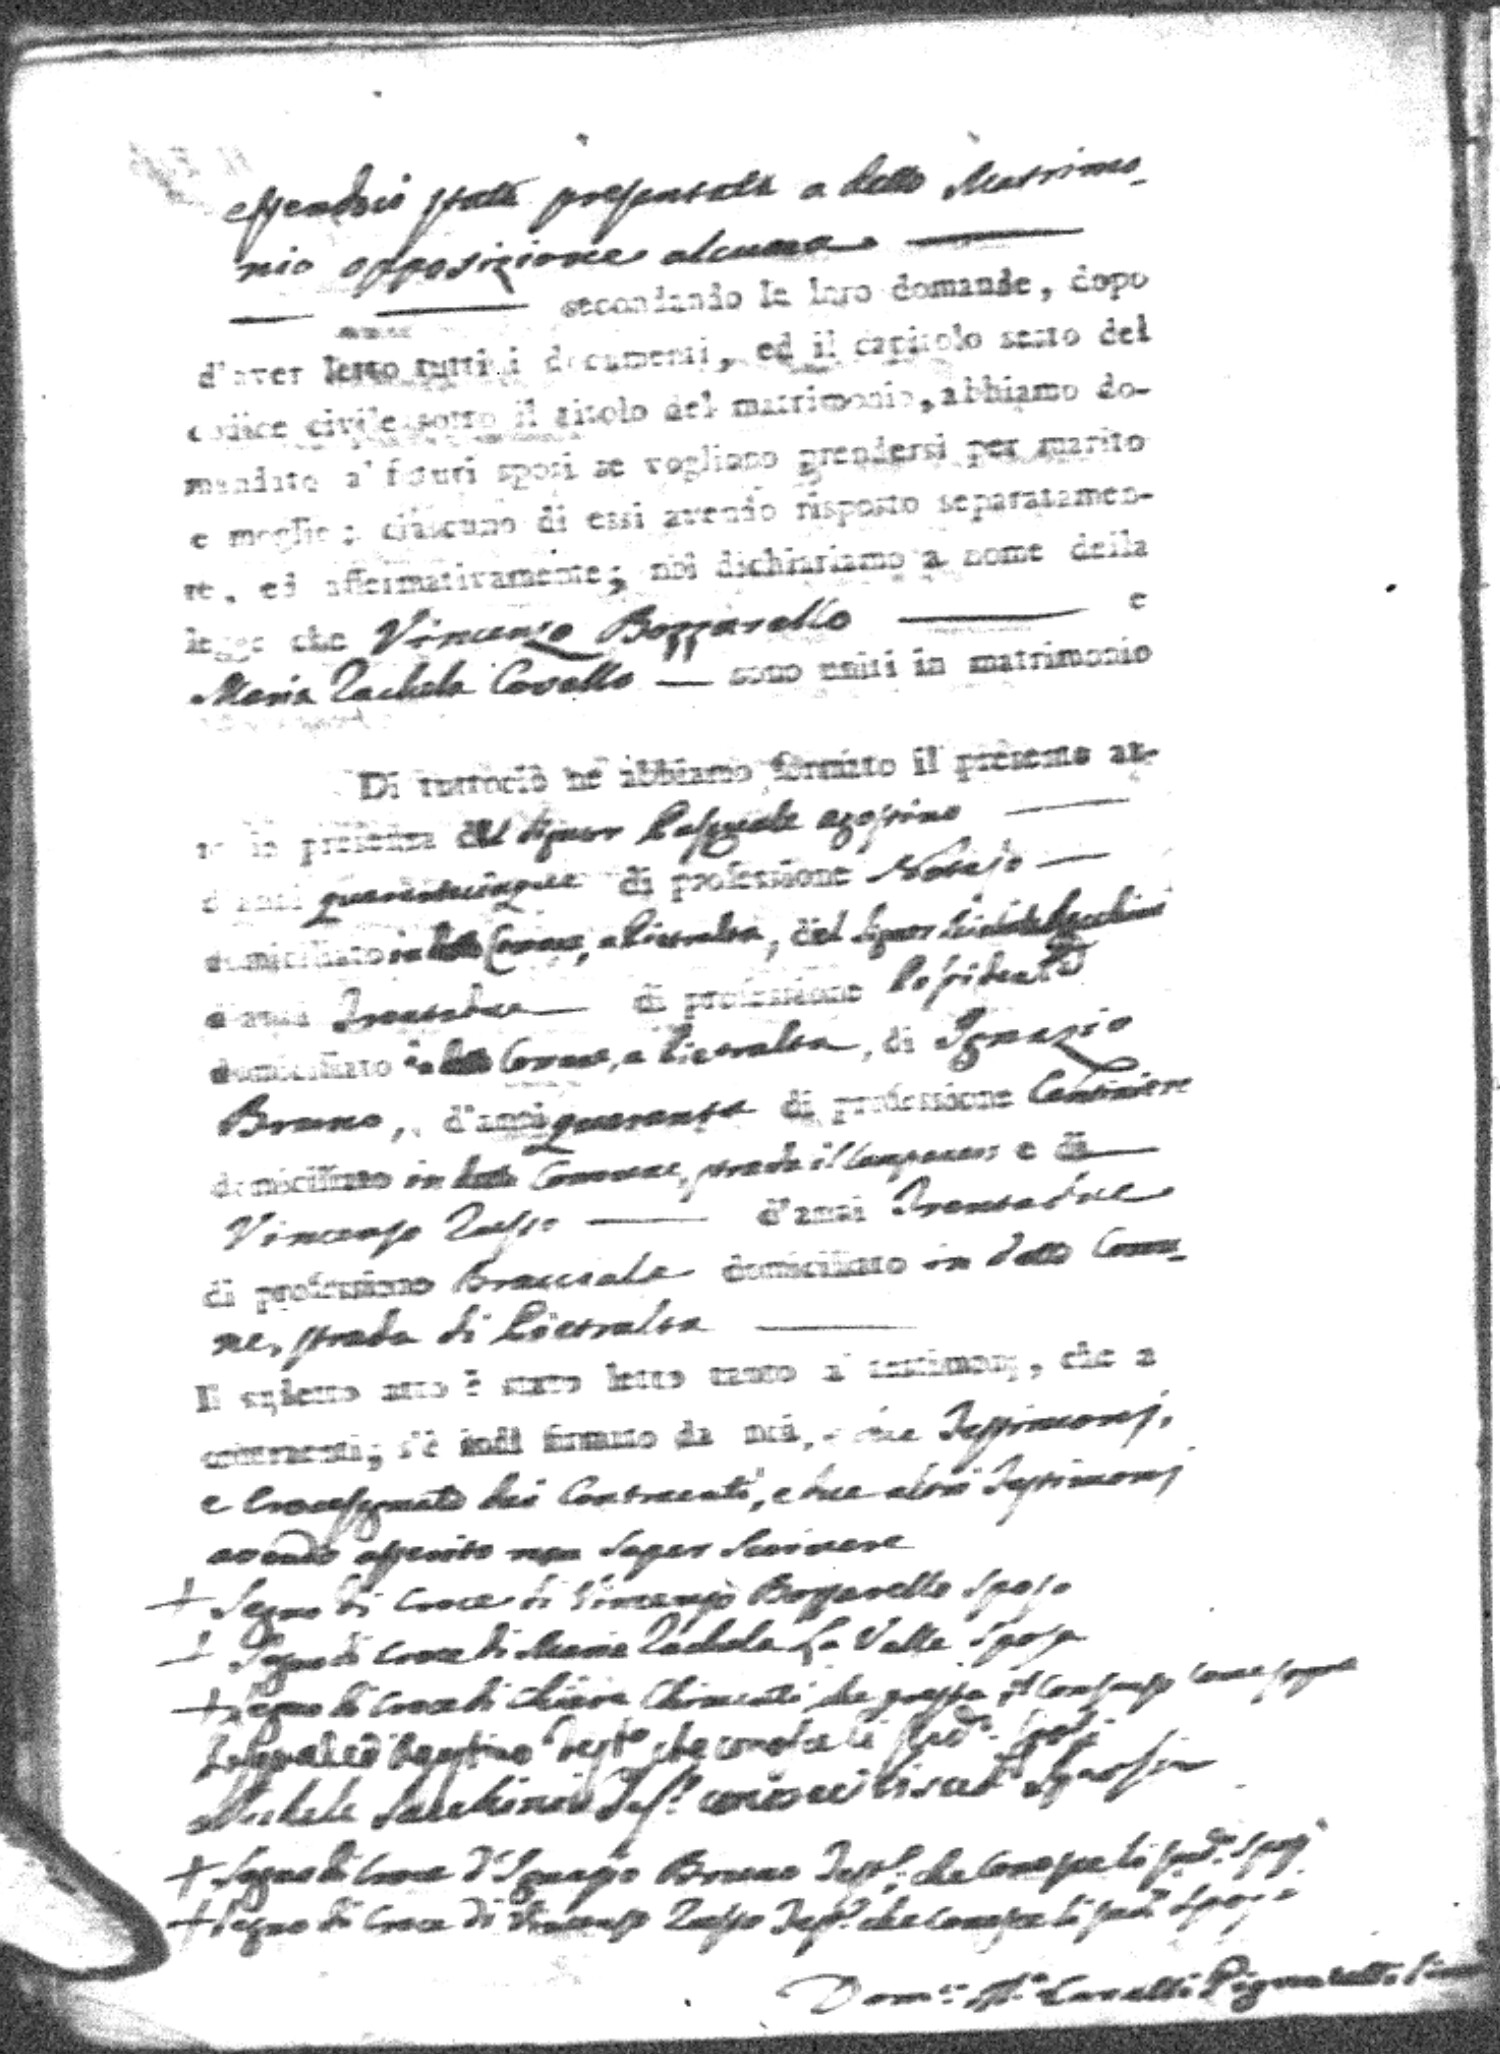 essendoci state presentate a detto Matrimo-
nio opposizione alcuna
secondando le loro domande, dopo
d'aver letto tutti i documenti, ed il capitolo sesto del
codice civile sotto il titolo del matrimonio, abbiamo do-
mandato a' futuri sposi se vogliono prendersi per marito
e moglie; ciascuno di essi avendo risposto separatamen-
te, ed affermativamente; noi dichiariamo a nome della
legge che Vincenzo Bozzarello e
Maria Rachela Covello sono uniti in matrimonio
Di tuttociò ne abbiamo formato il presente at-
to in presenza del Signor Pasquale Agostino
d'anni quarantacinque di professione Notajo
domiciliato in detto Comune, a Pietralta, del Signor Sacchini
d'anni Trentadue di professione Possidente
domiciliato in detto Comune, a Pietralta, di Ignazio
Bruno, d'anni quaranta di professione Cantiniere
domiciliato in detto Comune, strada il e di
Vincenzo Russo d'anni Trentadue
di professione Bracciale domiciliato in detto Comu-
ne, strada di Pietralta
Il sudetto atto è stato letto tanto a' testimonj, che a
contraenti; s'è indi firmato da noi, due Testimonj,
e Crocesegnato dai Contraenti, e due altri Testimonj
avendo asserito non saper scrivere
+ Segno di Croce di Vincenzo Bozzarello Sposo
+ Segno di Croce di Maria Rachela La Valle Sposa
+ Segno di Croce di Chiara Chimenti che presta il consenso come sopra
Pasquale Agostino Testo che conosce li sudi Sposi
Michele Sacchini Testo conosce li sudi Sposi
+ Segno di Croce d'Ignazio Bruno Testo che conosce li sudi Sposi
+ Segno di Croce di Vincenzo Russo Testo che conosce li sudi Sposi
Domco Ma Cavalli Pignatelli